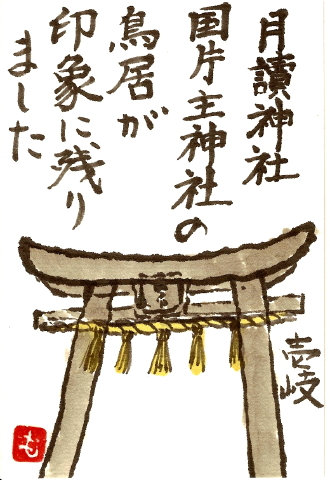 月讀神社
国片主神社の
鳥居が
印象に残り
ました
壱岐